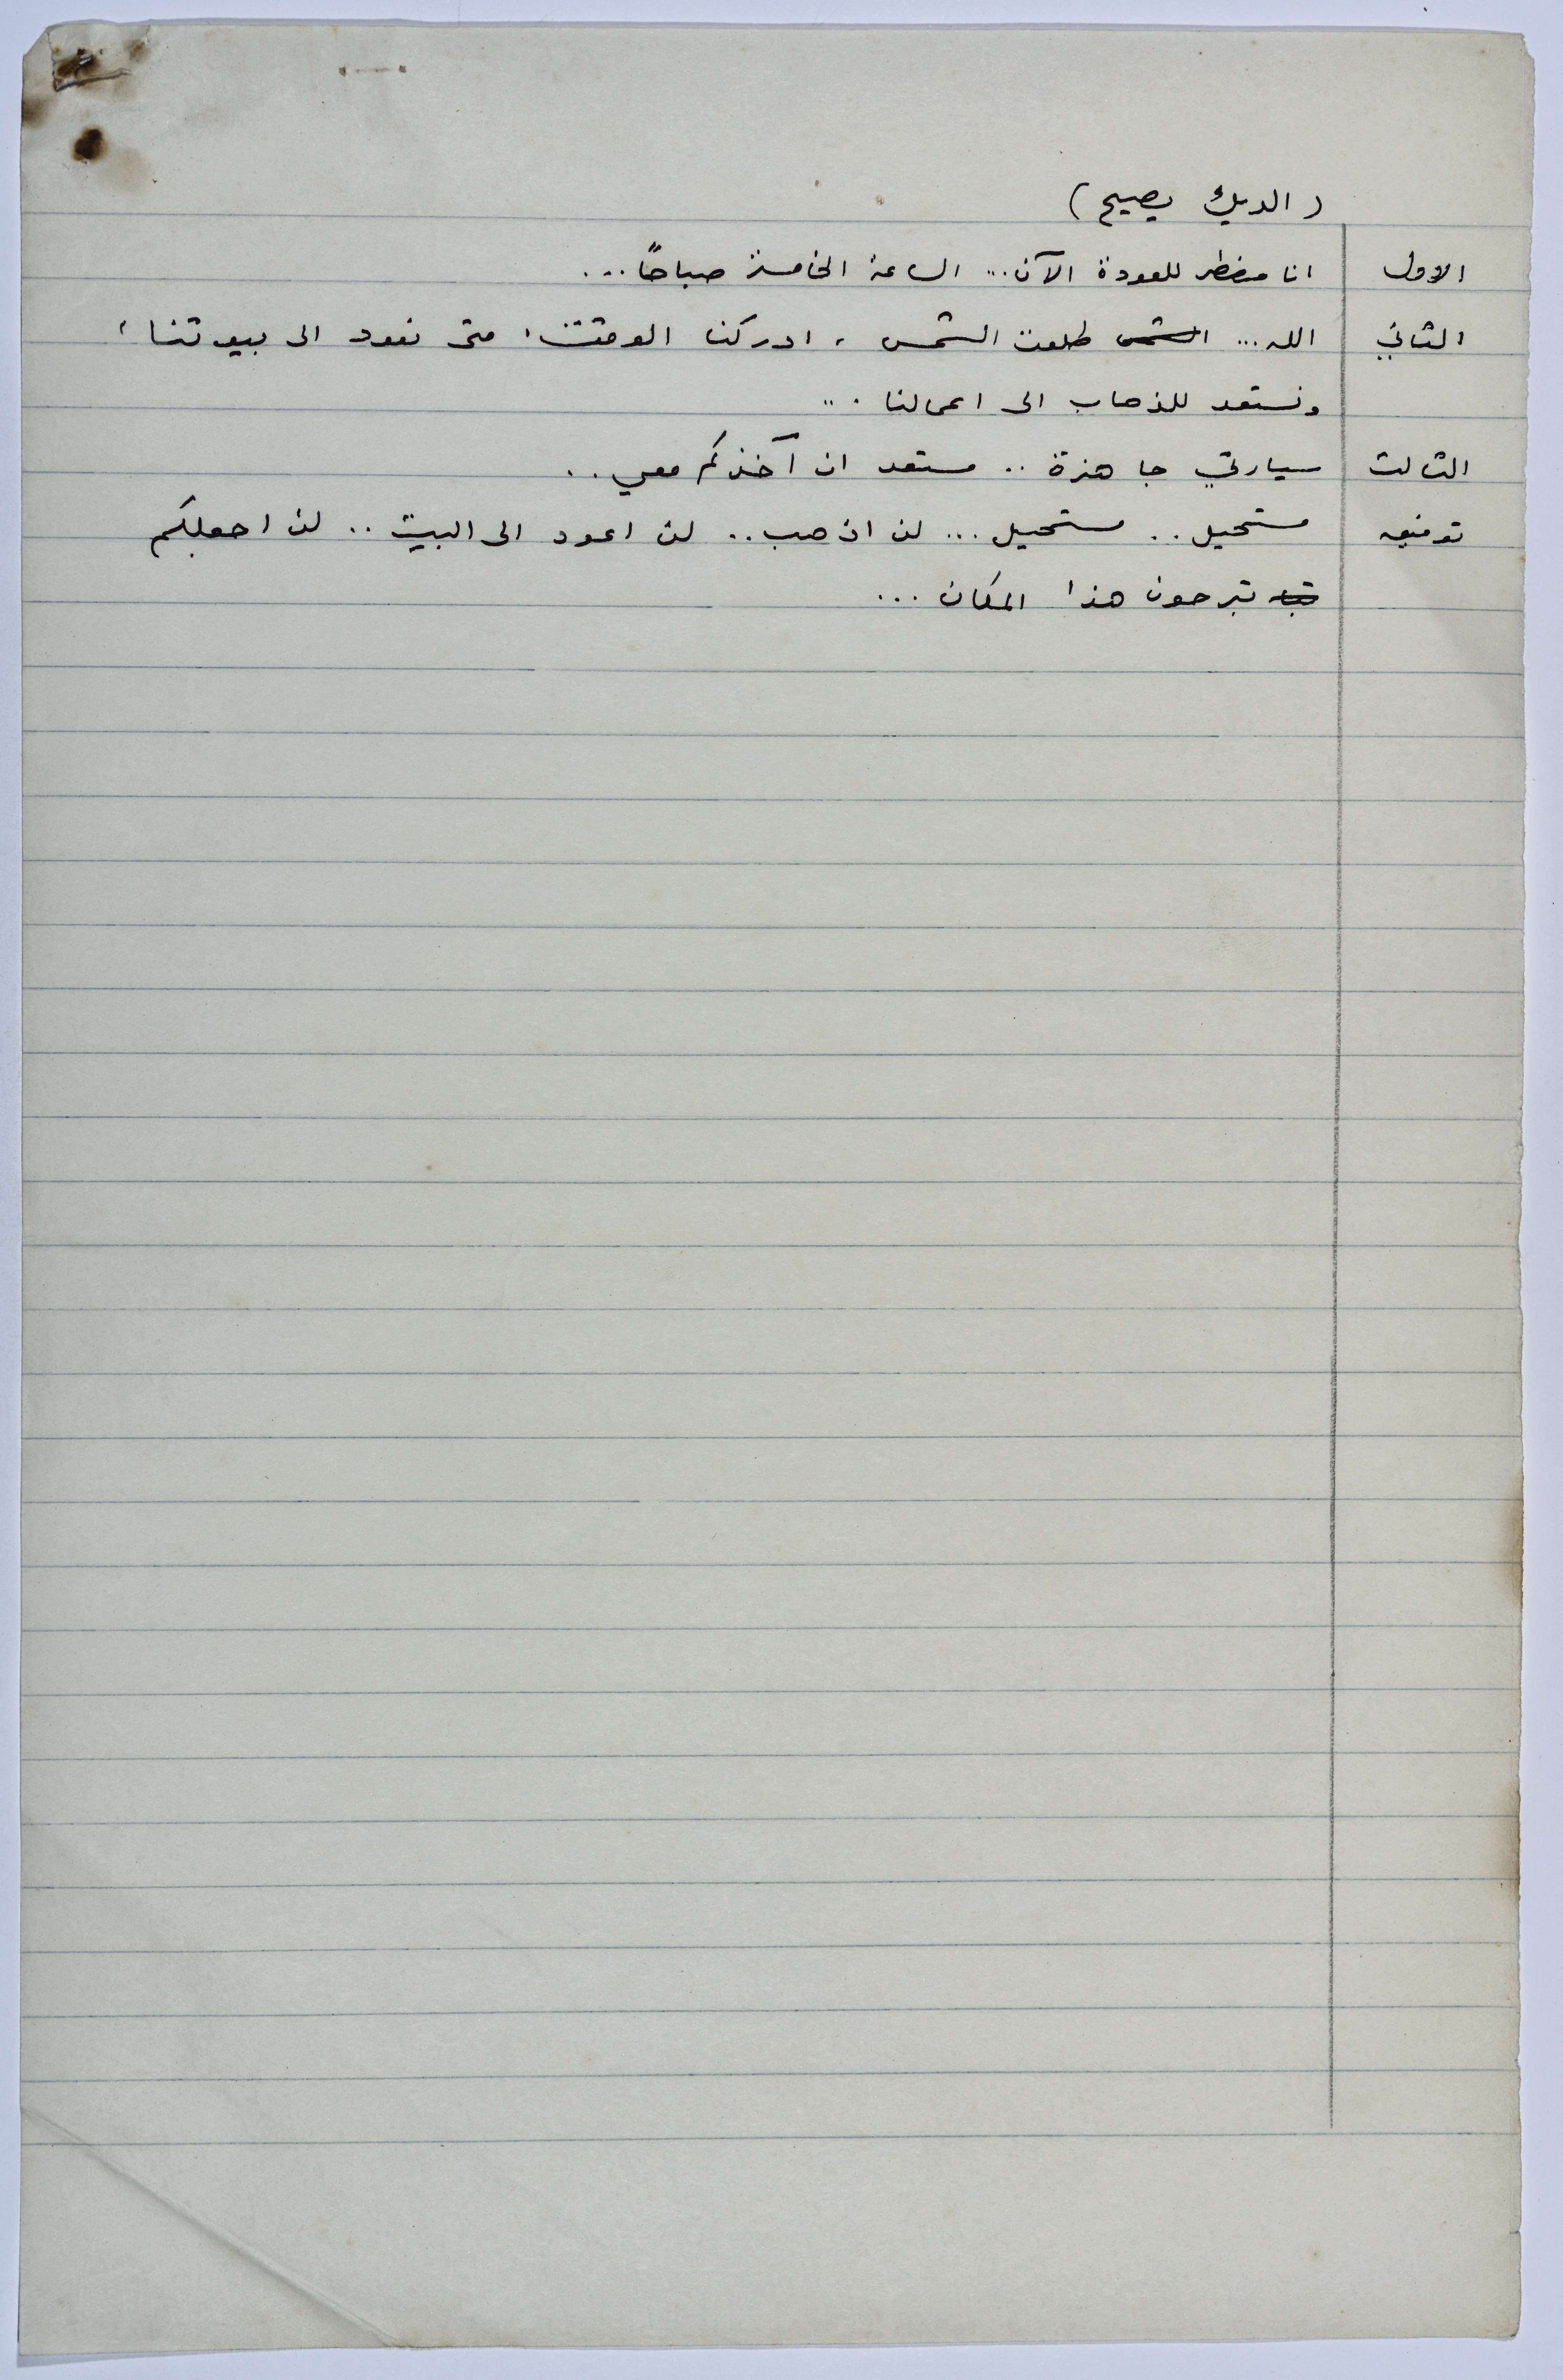 ( الديك يصيح )
الاول انا مضطر للعودة الآن... الساعة الخامسة صباحاً...
الثاني الله... الشمس طلعت الشمس ، ادركنا الوقت، متى نعود الى بيوتنا ،
ونستعد للذهاب الى اعمالنا ...
الثالث سيارتي جاهزة .. مستعد ان آخذكم معي ..
توفيق مستحيل .. مستحيل ... لن اذهب .. لن اعود الى البيت .. لن اجعلكم
تبرحون هذا المكان ...